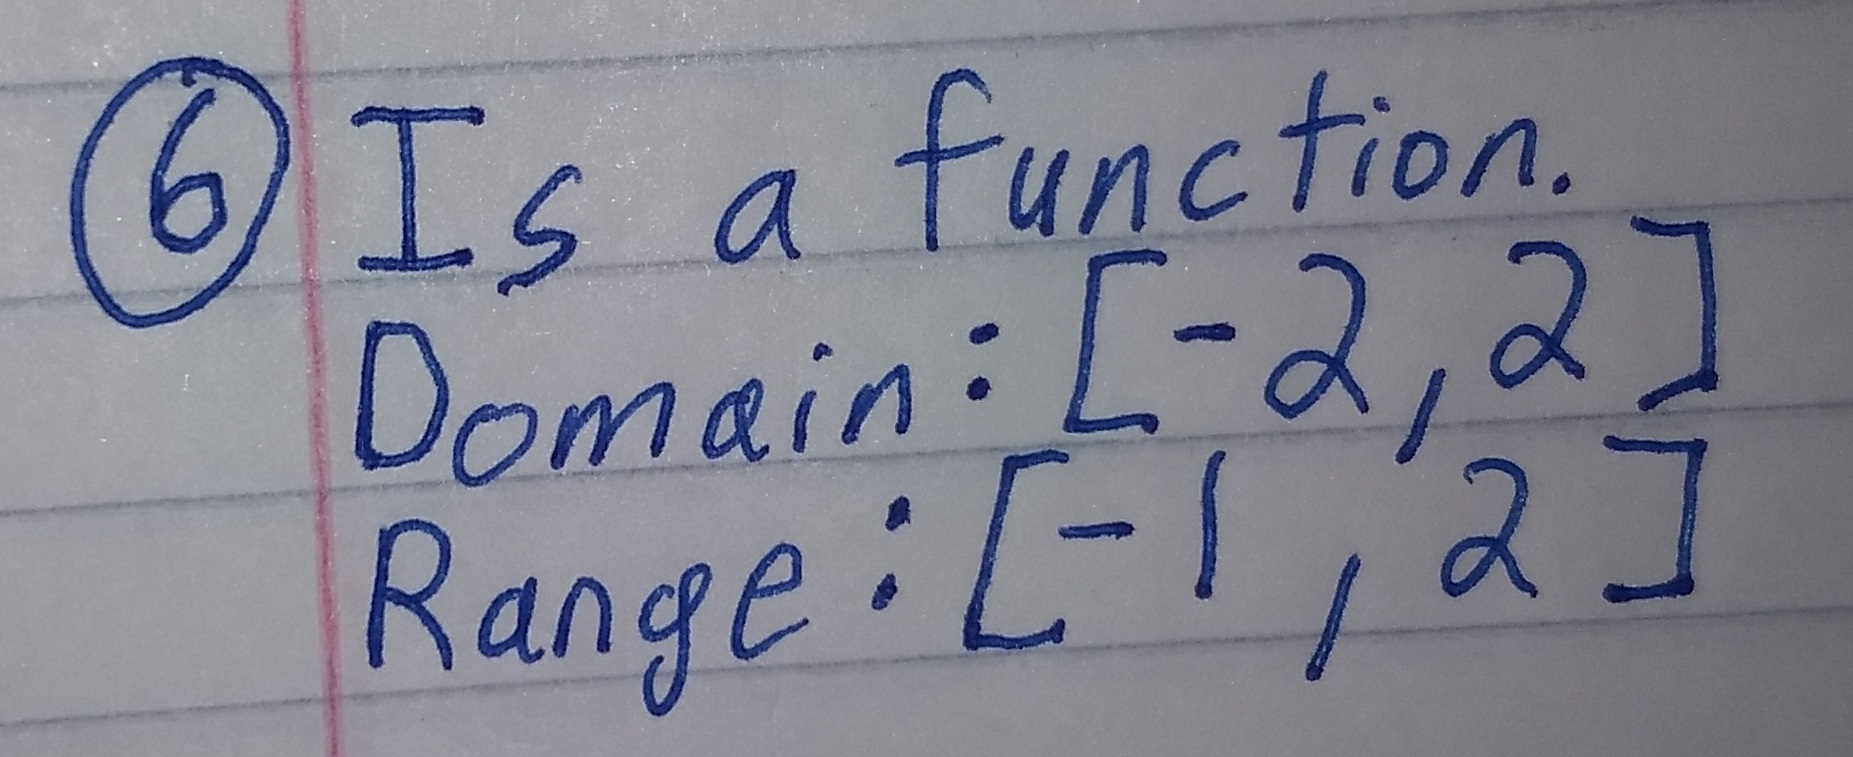 6 Is a function.
Domain: [-2, 2]
Range: [-1, 2]